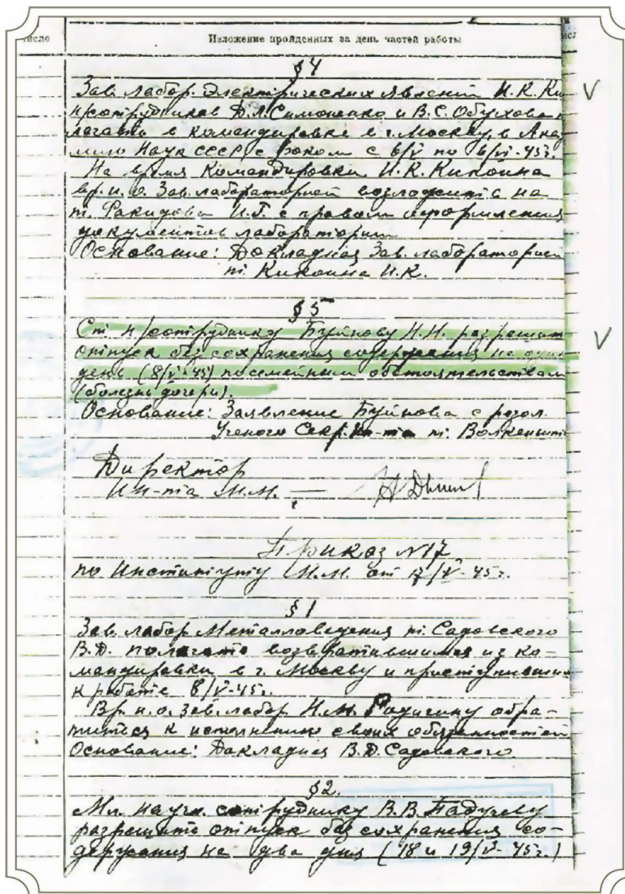 число
Изложение пройденных за день частей работы
§4
Зав. лабор. Электрических явлений И.К. Ки
н/сотрудников Д.Л. Симоненко и В.С. Обухова
полагать в командировке в г. Москву, в Ака
мию Наук СССР сроком с 6/V по 6/VI-45г.
На время командировки И.К. Кикоина
вр. и.о. Зав. лабораторией возложить на
т. Факидова И.Г. с правом оформления
документов лаборатории
Основание: Докладная Зав. лабораторией
т. Кикоина И.К.
§5
Ст. н/сотруднику Буйнову Н.Н. разрешит
отпуск без сохранения содержания на один
день (8/V-45) по семейным обстоятельствам
(болезнь дочери).
Основание: Заявление Буйнова с резол.
Ученого Секр. Ин-та т. Волкеншт
Директор
Ин-та М.М. —
Приказ №17
по Институту М.М. от 17/V-45г.
§1
Зав. лабор. Металловедения т. Садовского
В.Д. полагать возвратившимся из ко-
мандировки в г. Москву и приступившим
к работе 8/V-45г.
Вр. и.о. зав. лабор. Н.М. Родигину обра-
титься к исполнению своих обязанностей
Основание: Докладная В.Д. Садовского
§2.
Мл. научн. сотруднику В.В. Падучеву
разрешить отпуск без сохранения со-
держания на два дня (18 и 19/V-45г.)